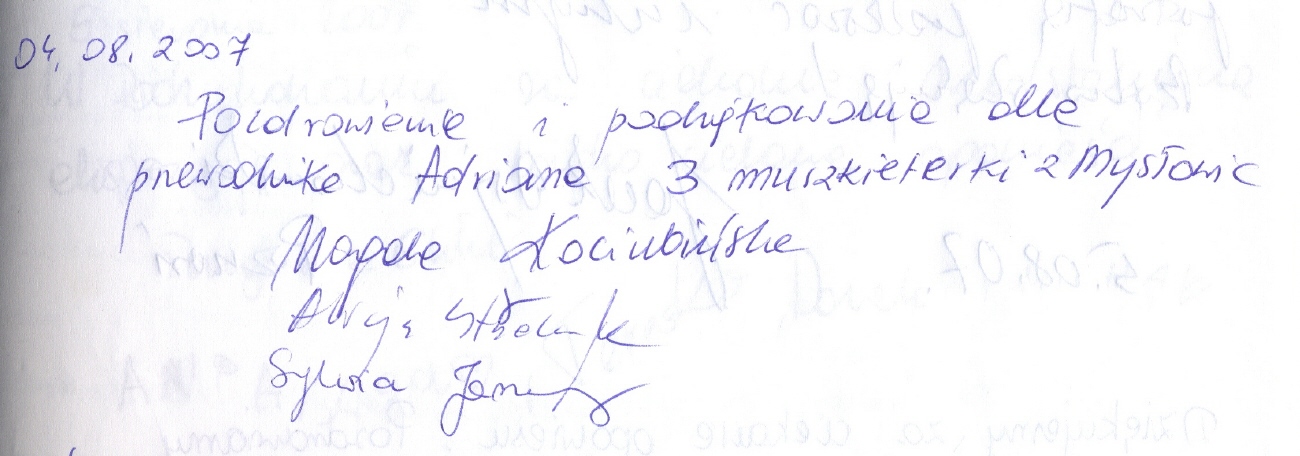 04.08.2007
Pozdrowienie i podziękowanie dla
przewodnika Adriana 3 muszkieterki z Mysłowic
Magda Kociubińska
Alicja
Sylwia